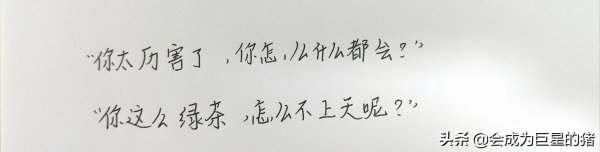 “你太厉害了，你怎么什么都会？”
“你这么绿茶，怎么不上天呢？”
头条 @会成为巨星的猪